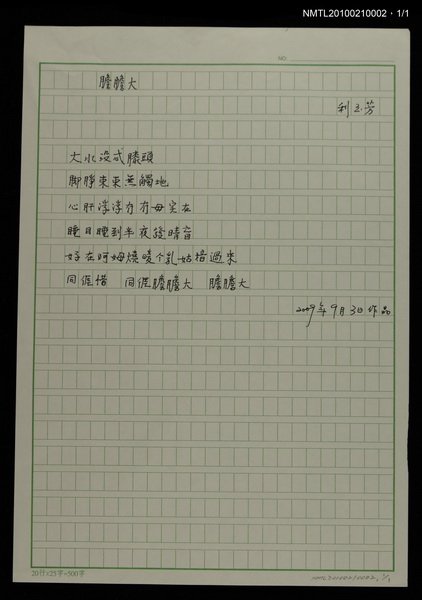 NMTL20100210002・1/1
NO.
膽膽大
利玉芳
大水沒忒膝頭
腳踭束束無觸地
心肝浮浮冇冇毋實在
睡目睡到半夜發啽音
好在阿姆燒暖个乳姑搭過來
同𠊎惜 同𠊎膽膽大 膽膽大
2009年9月3日作品
20行×25字=500字
NMTL20100210002, 1/1